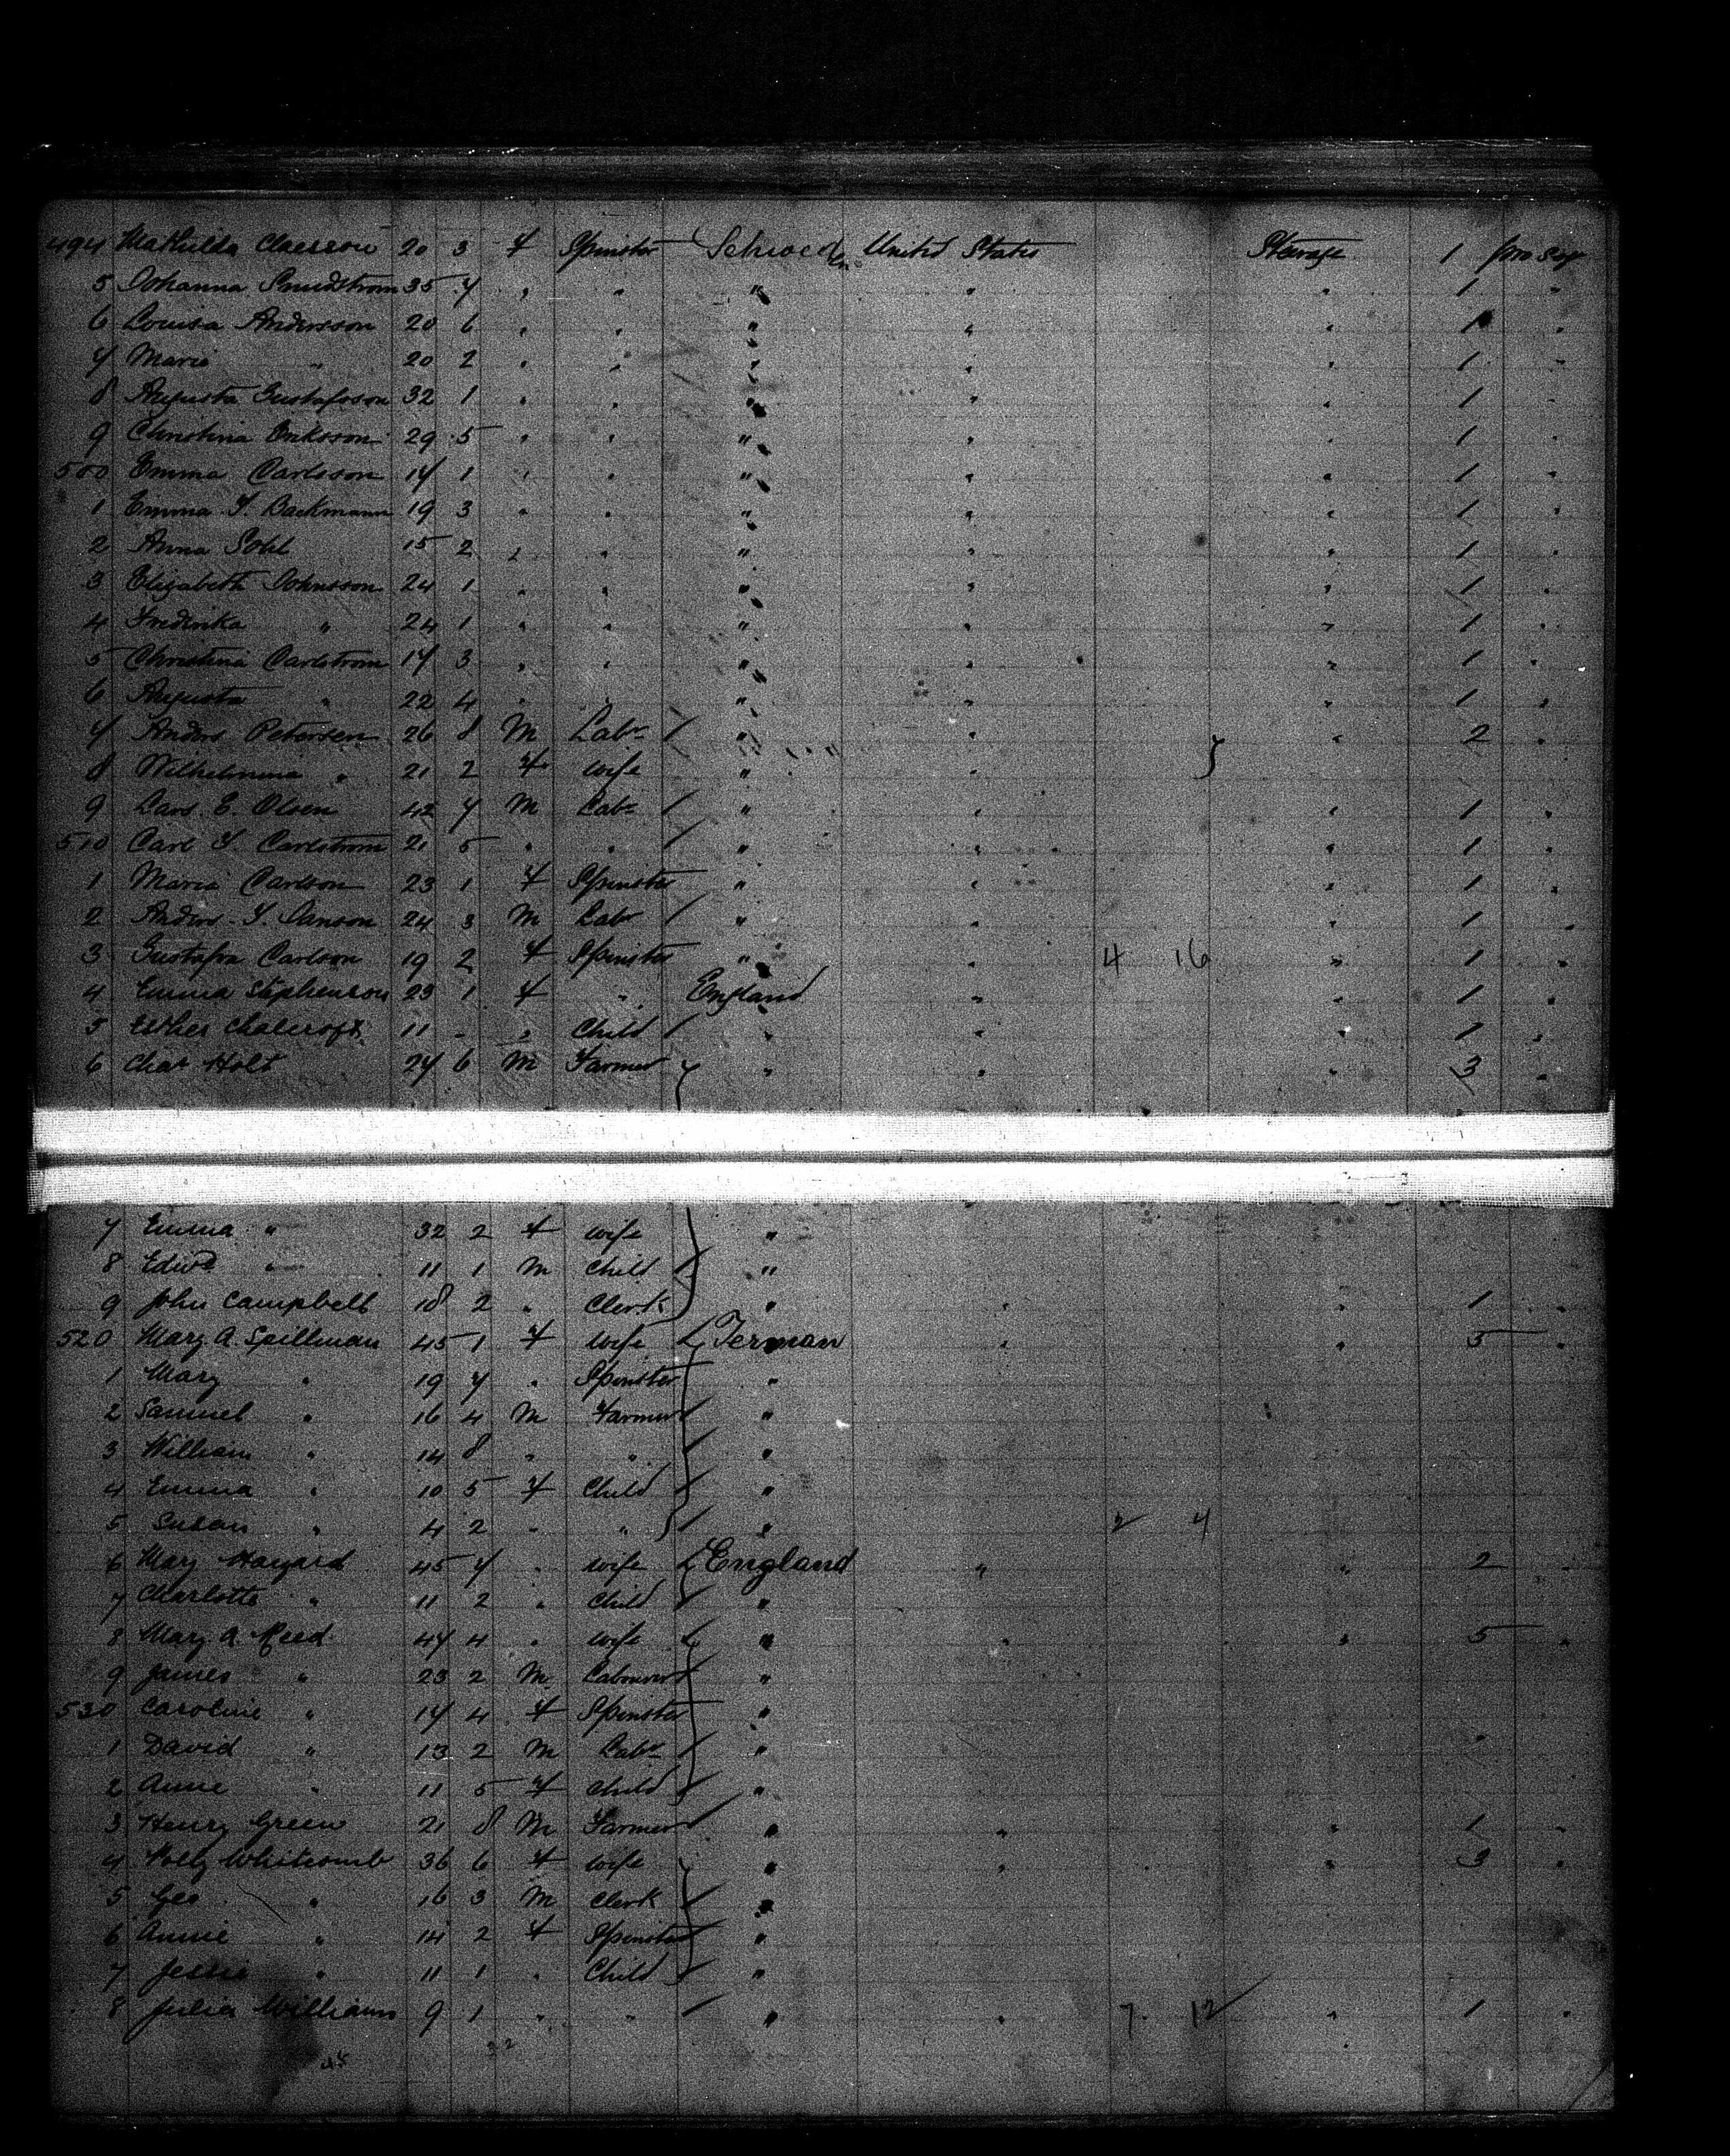 494 Mathilda Claesson 20 3 F Spinster Schweden United States Steerage 1 pro Sep
5 Johanna 35 7 " " " " " 1 "
6 Louisa Andersson 20 6 " " " " " 1 "
7 Maria " 20 2 " " " " " 1 "
8 Augusta Gustafsson 32 1 " " " " " 1 "
9 Christina Eriksson 29 5 " " " " " 1 "
500 Emma Carlsson 17 1 " " " " " 1 "
1 Emma F. Backmann 19 3 " " " " " 1 "
2 Anna Sohl 15 2 " " " " " 1 "
3 Elizabeth Johnsson 24 1 " " " " " 1 "
4 Frederika " 24 1 " " " " " 1 "
5 Christina Carlstrom 17 3 " " " " " 1 "
6 Augusta " 22 4 " " " " " 1 "
7 Anders Petersen 26 8 M Labr " " " 2 "
8 Wilhelmina " 21 2 F wife " "
9 Lars E. Olsen 42 7 M Labr " " " 1 "
510 Carl F. Carlstrom 21 5 " " " " " 1 "
1 Maria Carlson 23 1 F Spinster " " " 1 "
2 Anders F. Janson 24 3 M Labr " " " 1 "
3 Gustafva Carlson 19 2 F Spinster " " 4 16 " 1 "
4 Emma Stephenson 23 1 F " England " " 1 "
5 Esther Chalcroft 11 - " Child " " " 1 "
6 Chas Holt 27 6 M Farmer " " " 3 "
7 Emma " 32 2 F wife "
8 Edwd " 11 1 M Child "
9 John Campbell 18 2 " Clerk " " " 1 "
520 Mary A. Spillman 45 1 F wife German " " 5 "
1 Mary " 19 7 " Spinster "
2 Samuel " 16 4 M Farmer "
3 William " 14 8 " " "
4 Emma " 10 5 F Child "
5 Susan " 4 2 " " " 2 4
6 Mary Hayard 45 7 " wife England " " 2 "
7 Charlotte " 11 2 " Child "
8 Mary A. Reed 47 4 " wife " " " 5 "
9 James " 23 2 M Labourer "
530 Caroline " 17 4 F Spinster "
1 David " 13 2 M Labr "
2 Annie " 11 5 F Child "
3 Henry Green 21 8 M Farmer " " " 1 "
4 Polly Whitcomb 36 6 F wife " " " 3 "
5 Geo " 16 3 M Clerk "
6 Annie " 14 2 F Spinster "
7 Jessie " 11 1 " Child "
8 Julia Williams 9 1 " " " " 7 12 " 1 "